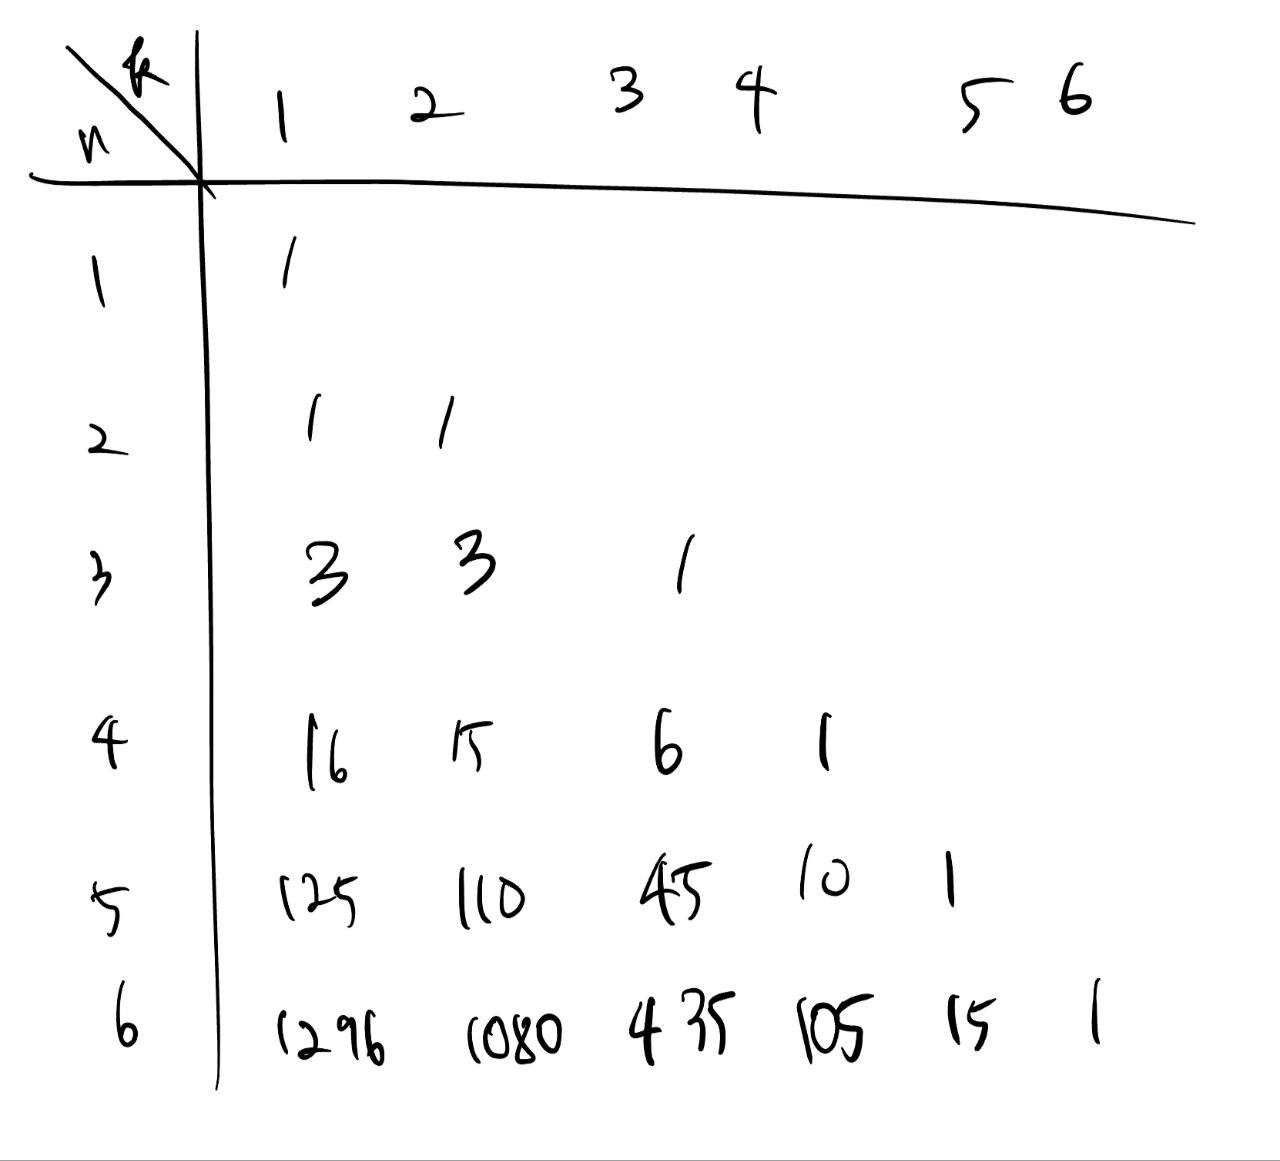 k
n 1 2 3 4 5 6
1 1
2 1 1
3 3 3 1
4 16 15 6 1
5 125 110 45 10 1
6 1296 1080 435 105 15 1